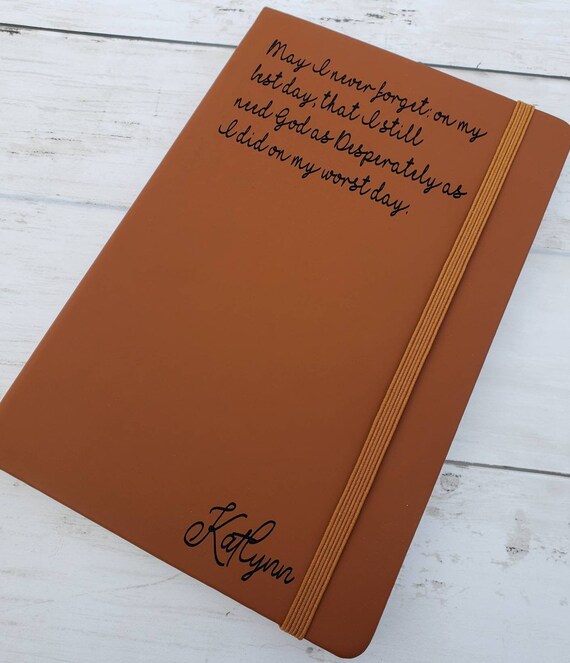 May I never forget: on my
best day, that I still
need God as Desperately as
I did on my worst day.
Katlynn